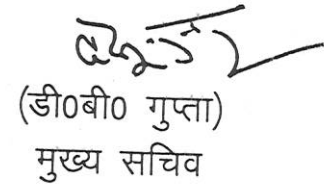 (डी0बी0 गुप्ता)
मुख्य सचिव